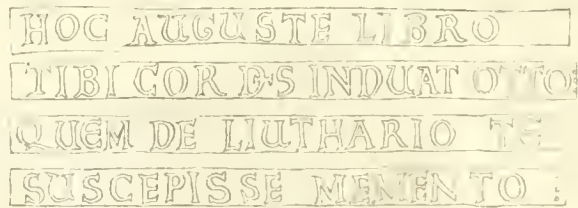 HOC AUGUSTE LIBRO
TIBI COR D̅S INDUAT OTTO:
QUEM DE LIUTHARIO TE
SUSCEPISSE MEMENTO :